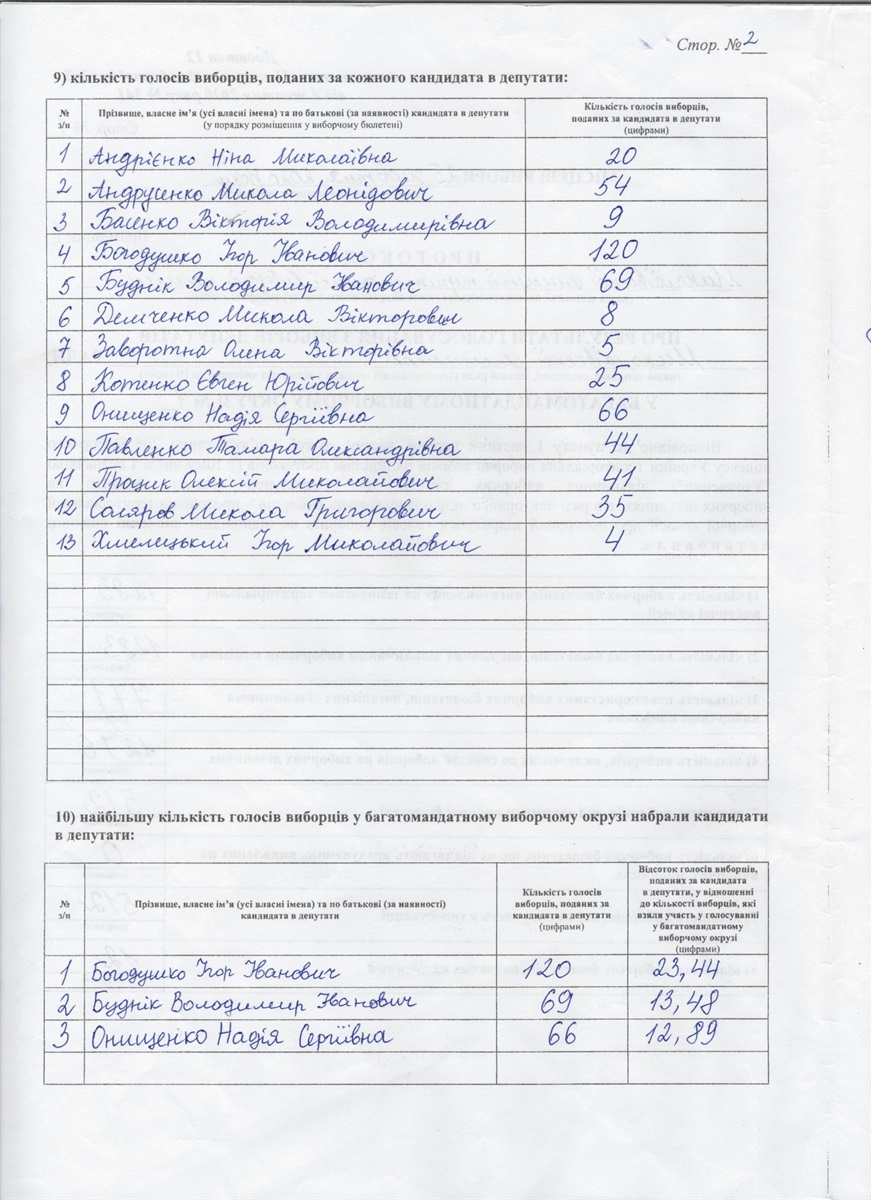 Стор. № 2
9) кількість голосів виборців, поданих за кожного кандидата в депутати:
№ з/п
Прізвище, власне ім’я (усі власні імена) та по батькові (за наявності) кандидата в депутати
(у порядку розміщення у виборчому бюлетені)
Кількість голосів виборців,
поданих за кандидата в депутати
(цифрами)
1 Андрієнко Ніна Миколаївна 20
2 Андрусенко Микола Леонідович 54
3 Басенко Вікторія Володимирівна 9
4 Богодушко Ігор Іванович 120
5 Буднік Володимир Іванович 69
6 Демченко Микола Вікторович 8
7 Заворотна Олена Вікторівна 5
8 Котенко Євген Юрійович 25
9 Онищенко Надія Сергіївна 66
10 Павленко Тамара Олександрівна 44
11 Процик Олексій Миколайович 41
12 Соляров Микола Григорович 35
13 Хмелицький Ігор Миколайович 4
10) найбільшу кількість голосів виборців у багатомандатному виборчому окрузі набрали кандидати
в депутати:
№ з/п
Прізвище, власне ім’я (усі власні імена) та по батькові (за наявності)
кандидата в депутати
Кількість голосів
виборців, поданих за
кандидата в депутати
(цифрами)
Відсоток голосів виборців,
поданих за кандидата
в депутати, у відношенні
до кількості виборців, які
взяли участь у голосуванні
у багатомандатному
виборчому окрузі
(цифрами)
1 Богодушко Ігор Іванович 120 23,44
2 Буднік Володимир Іванович 69 13,48
3 Онищенко Надія Сергіївна 66 12,89